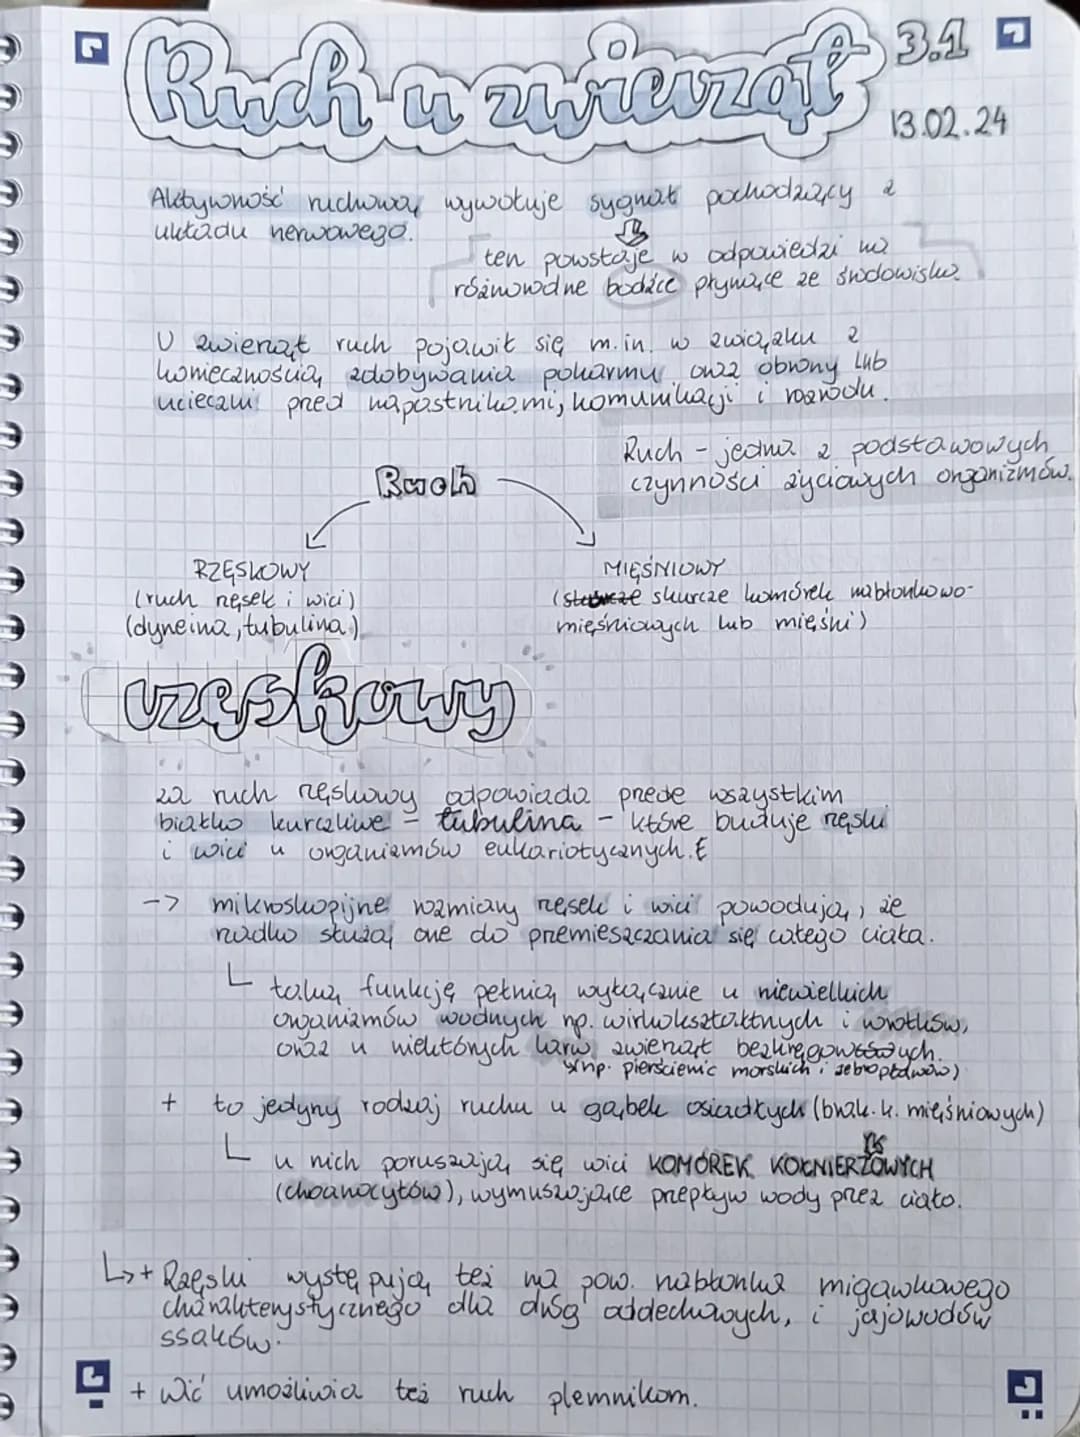 Ruch u zwierząt 3.1
13.02.24
Aktywność ruchową wywołuje sygnał pochodzący z
układu nerwowego.
ten powstaje w odpowiedzi na
różnorodne bodźce płynące ze środowiska.
U zwierząt ruch pojawił się m.in. w związku z
koniecznością zdobywania pokarmu oraz obrony lub
ucieczki przed napastnikami, komunikacji i rozrodu.
Ruch - jedna z podstawowych
czynności życiowych organizmów.
Ruch
RZĘSKOWY
(ruch rzęsek i wici)
(dyneina, tubulina)
MIĘŚNIOWY
(skurcze komórek nabłonkowo-
mięśniowych lub mięśni)
rzęskowy
za ruch rzęskowy odpowiada przede wszystkim
białko kurczliwe - tubulina - które buduje rzęski
i wici u organizmów eukariotycznych.
-> mikroskopijne rozmiary rzęsek i wici powodują, że
rzadko służą one do przemieszczania się całego ciała.
taką funkcję pełnią wyłącznie u niewielkich
organizmów wodnych np. wirkokształtnych i wrotków,
oraz u niektórych larw zwierząt bezkręgowych.
np. pierścienic morskich i żebropławów)
+ to jedyny rodzaj ruchu u gąbek osiadłych (brak. k. mięśniowych)
u nich poruszają się wici KOMÓREK KOŁNIERZOWYCH
(choanocytów), wymuszające przepływ wody przez ciało.
+ Rzęski występują też na pow. nabłonka migawkowego
charakterystycznego dla dróg oddechowych, i jajowodów
ssaków.
+ wić umożliwia też ruch plemnikom.